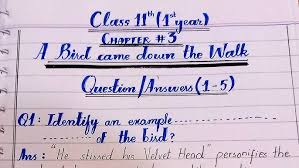 Class 11th (1st year)
CHAPTER # 3
A Bird came down the Walk
Question/Answers (1-5)
Q1: Identify an example ...............
............... of the bird?
Ans: "He stirred his Velvet Head" personifies the